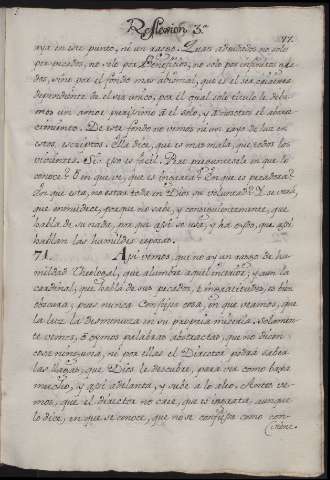 Reflexion 3.ª
77.
aya en este punto, ni un rasgo. Quan adeudados no solo
por pecados, no solo por beneficios, no solo por infinitos
dos, sino por el fondo mas abismal, que es el ser
dependiente de el ser unico, por el qual solo titulo le debe-
mos un amor purissimo à el solo, y à nosotros el aborre-
cimiento. De este fondo no vemos ni un rayo de luz en
estos, escriptos. Ella dice, que es mas mala, que todos los
vivientes. Si: esso es facil. Pero preguntesele en que lo
conoce? O en que ve, que es ingrata? En que es pecadora?
En que esta, no estar toda en Dios su voluntad? Y se verà,
que enmudece, porque no sabe, y consiguientemente, que
habla de su nada, por que assi se usa, y ha oydo, que assi
hablan las humildes esposas.
71. Assi vemos, que no ay un rasgo de hu-
mildad Theologal, que alumbre aquel interior; y aun la
cardinal, que habla de sus pecados, è ingratitudes, es bien
obscura; pues nunca confiesa cosa, en que veamos, que
la luz la desmenuza en su propria miseria. Solamen-
te vemos, ò oymos palabras abstractas, que no dicen
cosa ninguna, ni por ellas el Director podrà saber
las llagas, que Dios le descubre, para ver como baja
mucho, y assi adelanta, y sube à lo alto. Antes ve-
mos, que el director no cree, que es ingrata, aunque
lo dice, en que se conoce, que no se confiessa como con-